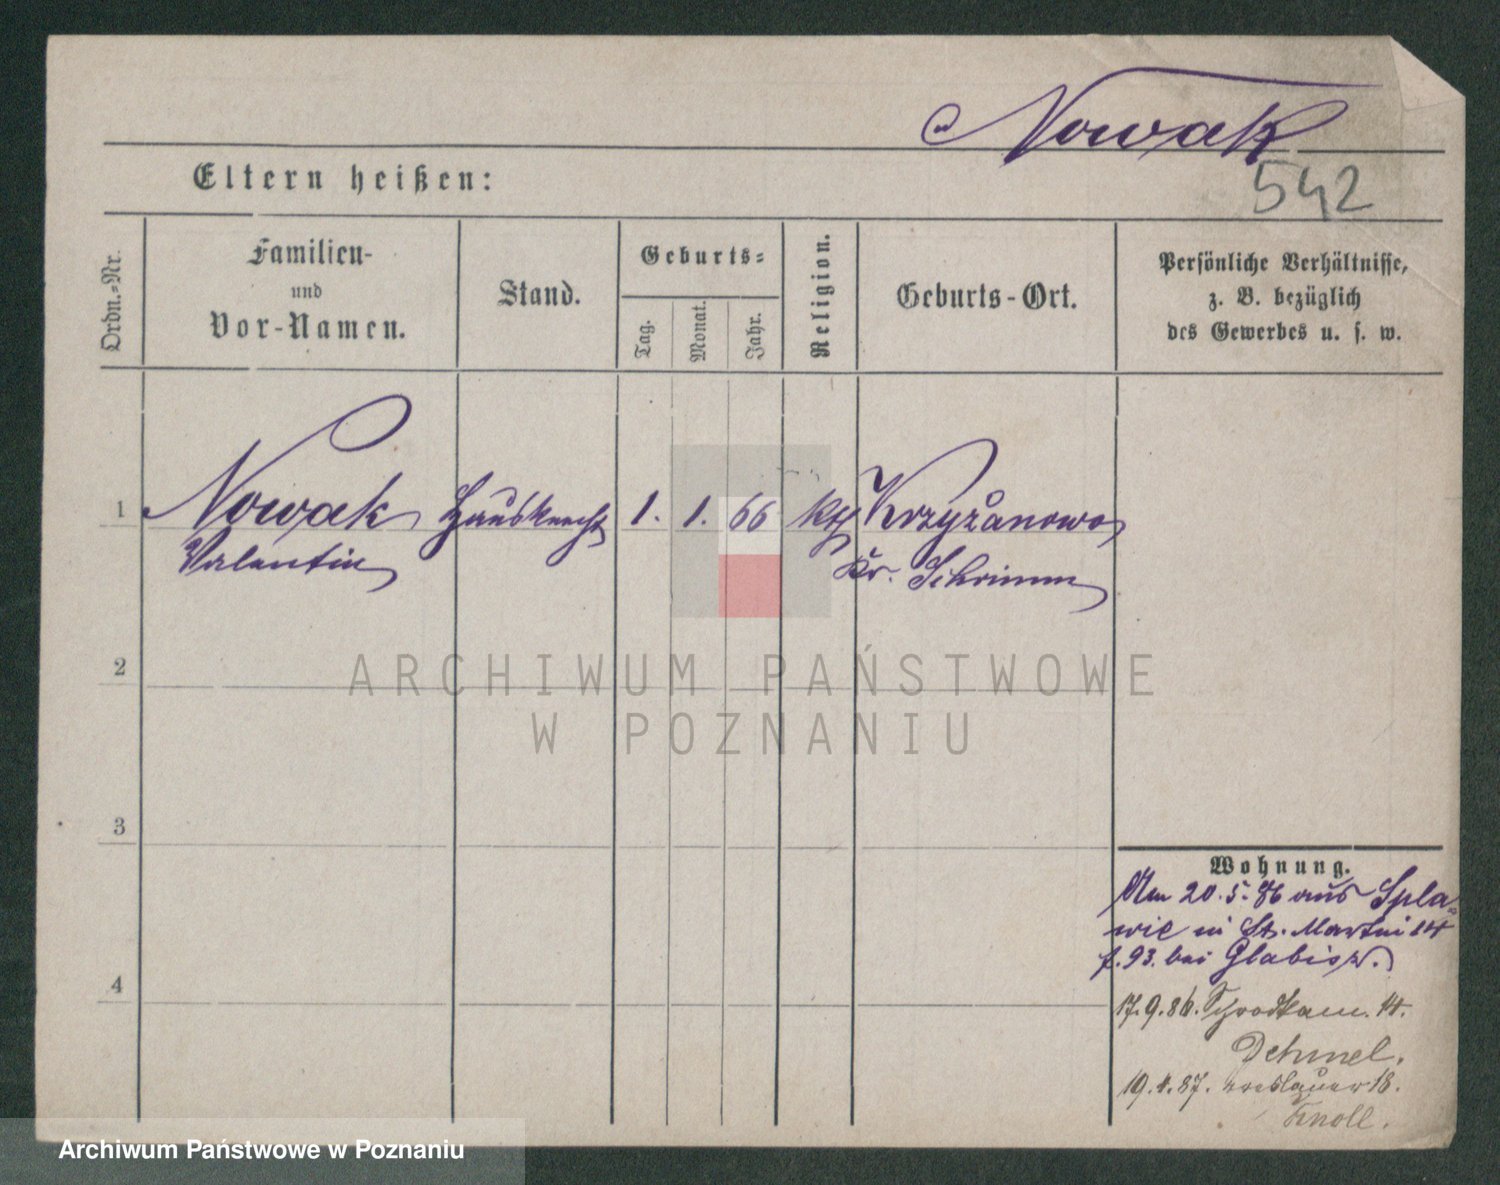 Nowak
542
Eltern heißen:
Ordn.=Nr.
Familien-
und
Vor-Namen.
Stand.
Geburts=
Tag.
Monat.
Jahr.
Religion.
Geburts-Ort.
Persönliche Verhältnisse,
z. B. bezüglich
des Gewerbes u. s. w.
1
Nowak Hausknecht 1. 1. 66 kth Krzyżanowo
Valentin Kr. Schrimm
2
ARCHIWUM PAŃSTWOWE
W POZNANIU
3
4
Wohnung.
Am 20.5.86 aus Spla-
wie in St. Martin 14
f. 93. bei Glabisz.
17.9.86. 14.
Dehmel.
19.4.87. 18.
Knoll.
Archiwum Państwowe w Poznaniu